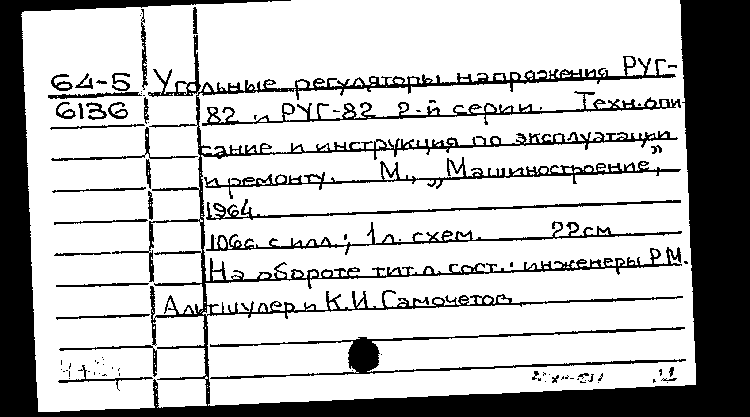 64-5 Угольные регуляторы напряжения РУГ-
6136 82 и РУГ-82 2-й серии. Техн.опи
сание и инструкция по эксплуатации
и ремонту. М., „Машиностроение",
1964.
106с. с илл.; 1л. схем. 22см
На обороте тит.л. сост.: инженеры Р.М.
Альтшулер и К.И. Самочетов.